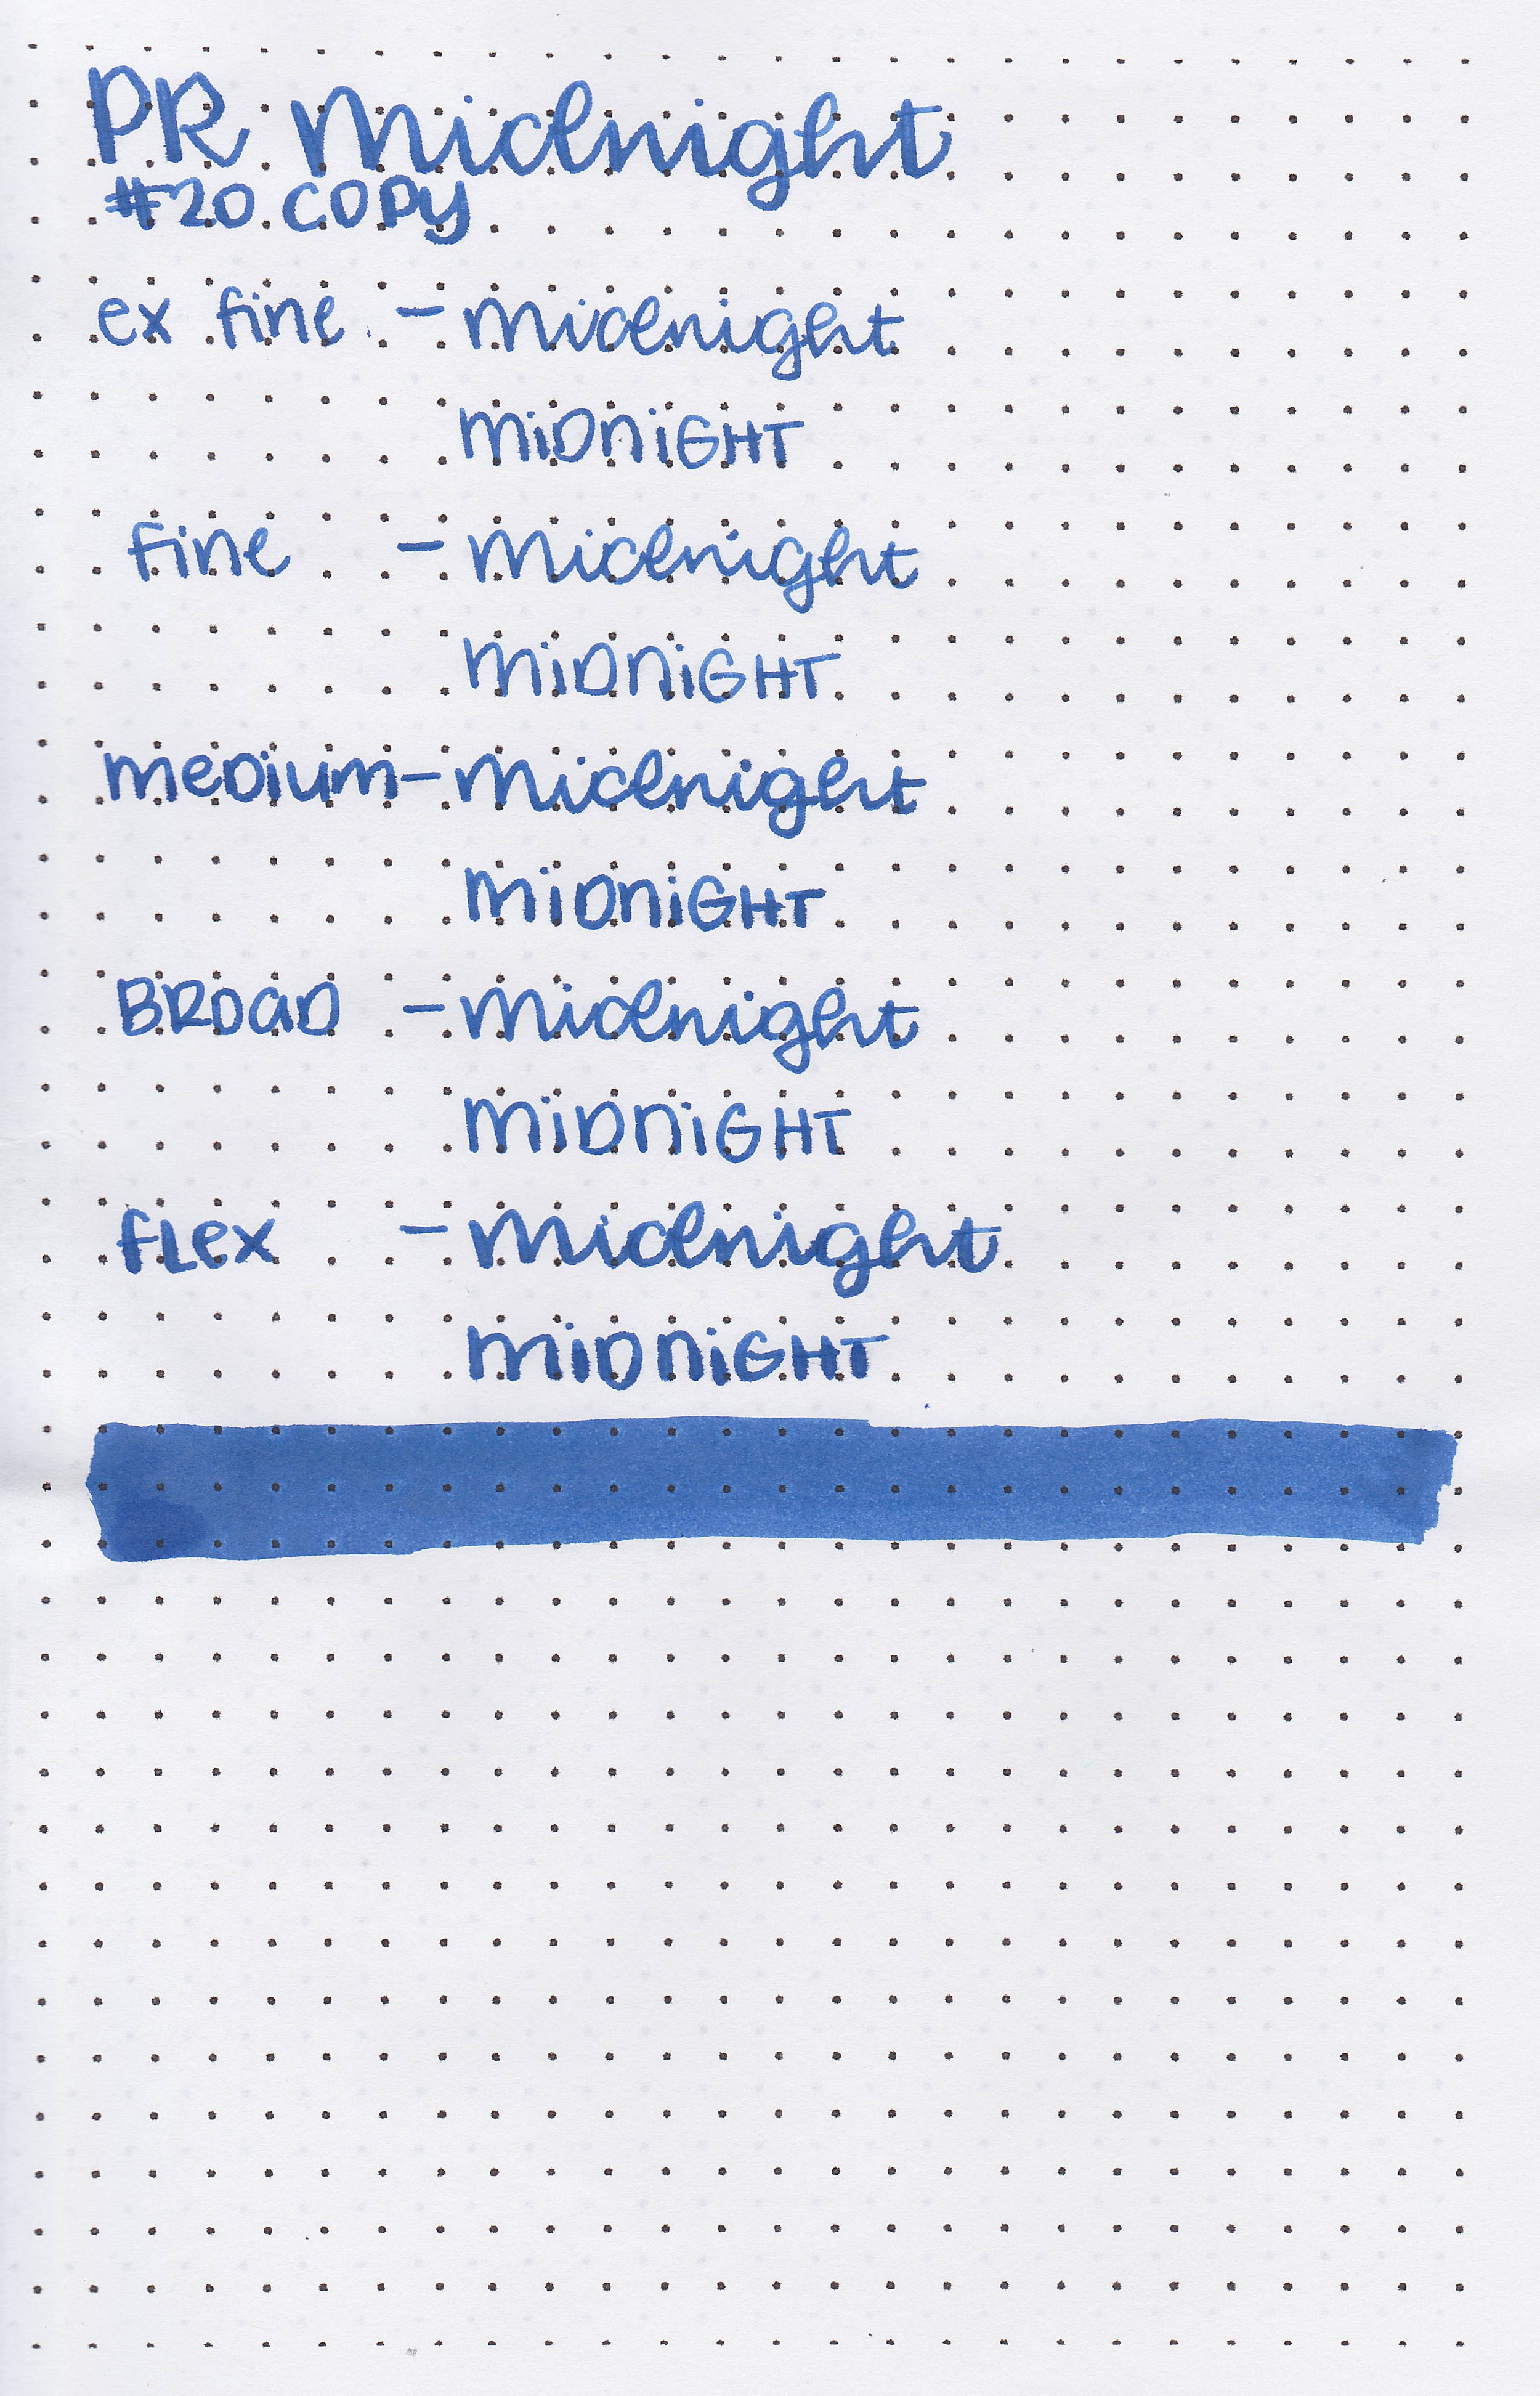 PR Midnight
#20 COPY
ex fine - Midnight
MiDNiGHT
fine - Midnight
MiDNiGHT
MeDium - Midnight
MiDNiGHT
BROaD - Midnight
MiDNiGHT
fLex - Midnight
MiDNiGHT